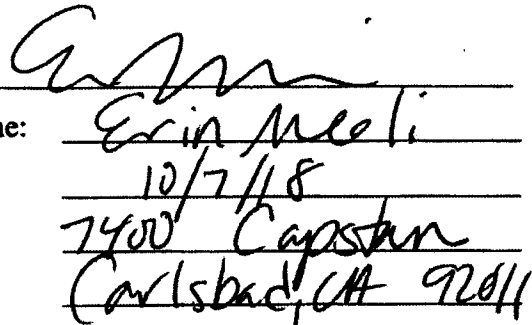 ne: Erin Meeli
10/7/18
7400 Capstan
Carlsbad, CA 92011